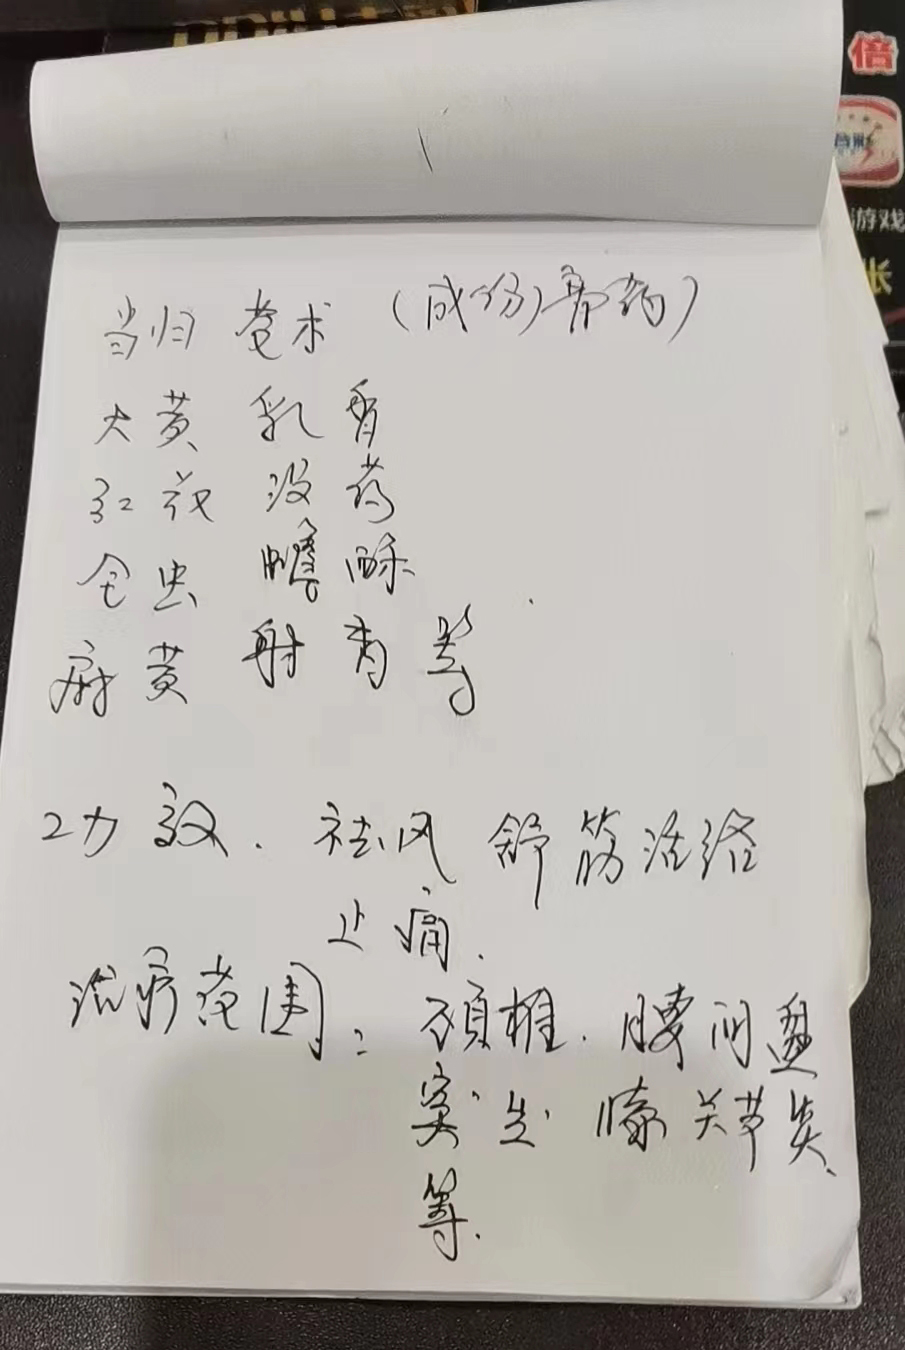 倍
游戏
张
当归 莪术 (成份)膏药)
大黄 乳香
红花 没药
全虫 蟾酥
麻黄 射香等
功效. 祛风 舒筋活络
止痛.
治疗范围: 颈椎. 腰间盘
突出 膝关节炎.
等.